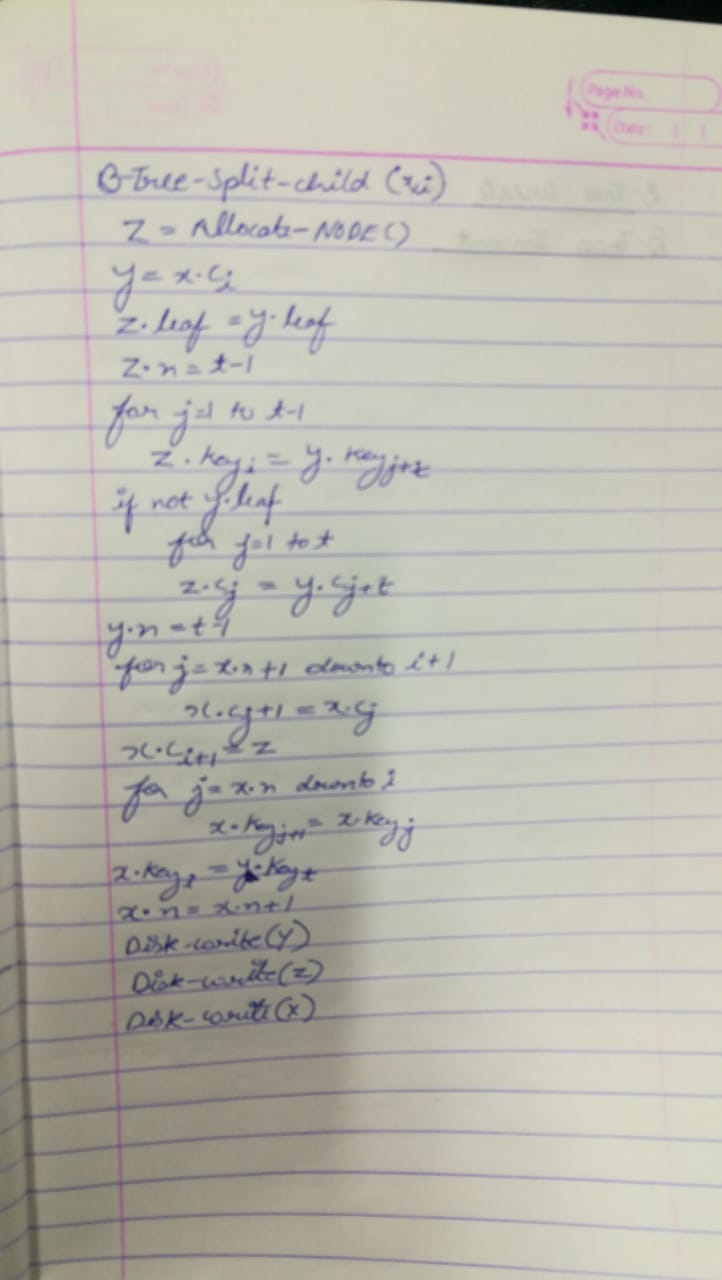 Page No.
Date:
B-Tree-Split-child (x,i)
Z = Allocate-NODE()
y = x.ci
z.leaf = y.leaf
Z.n = t-1
for j=1 to t-1
z.keyi = y.keyj+t
if not y.leaf
for j=1 to t
z.cj = y.cj+t
y.n = t-1
for j = x.n+1 downto i+1
x.cj+1 = x.cj
x.ci+1 = z
for j = x.n downto i
x.keyj+1 = x.keyj
x.keyi = y.keyt
x.n = x.n+1
Disk-write(y)
Disk-write(z)
Disk-write(x)